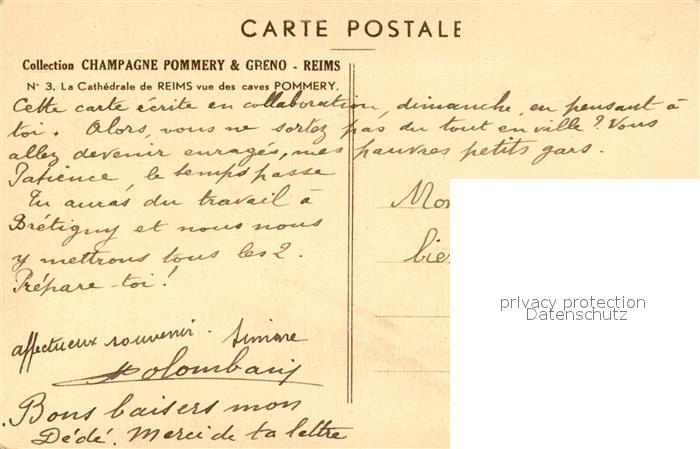 CARTE POSTALE
Collection CHAMPAGNE POMMERY & GRENO - REIMS
N° 3. La Cathédrale de REIMS vue des caves POMMERY.
Cette carte écrite en collaboration, dimanche, en pensant à
toi. Alors, vous ne sortez pas du tout en ville ? Vous
allez devenir enragés, mes pauvres petits gars.
Patience le temps passe
Tu auras du travail à
Brétigny et nous nous
y mettrons tous les 2.
Prépare-toi !
affectueux souvenir. Simone
Colombani
Bons baisers mon
Dédé. Merci de ta lettre
Mon
bie
privacy protection
Datenschutz